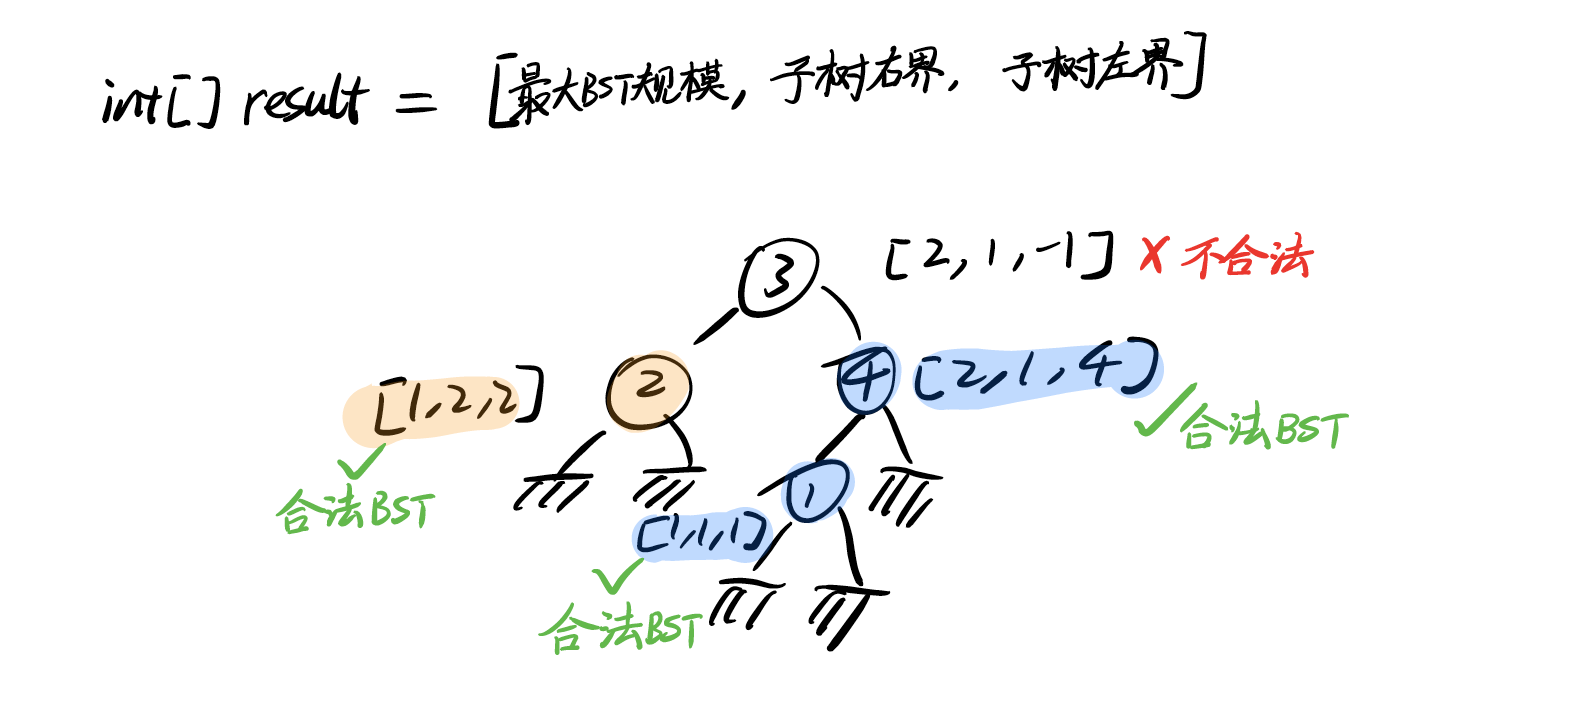 int[] result = [最大BST规模, 子树右界, 子树左界]
3
[2, 1, -1] X 不合法
[1, 2, 2]
2
4
[2, 1, 4]
合法BST
合法BST
1
[1, 1, 1]
合法BST